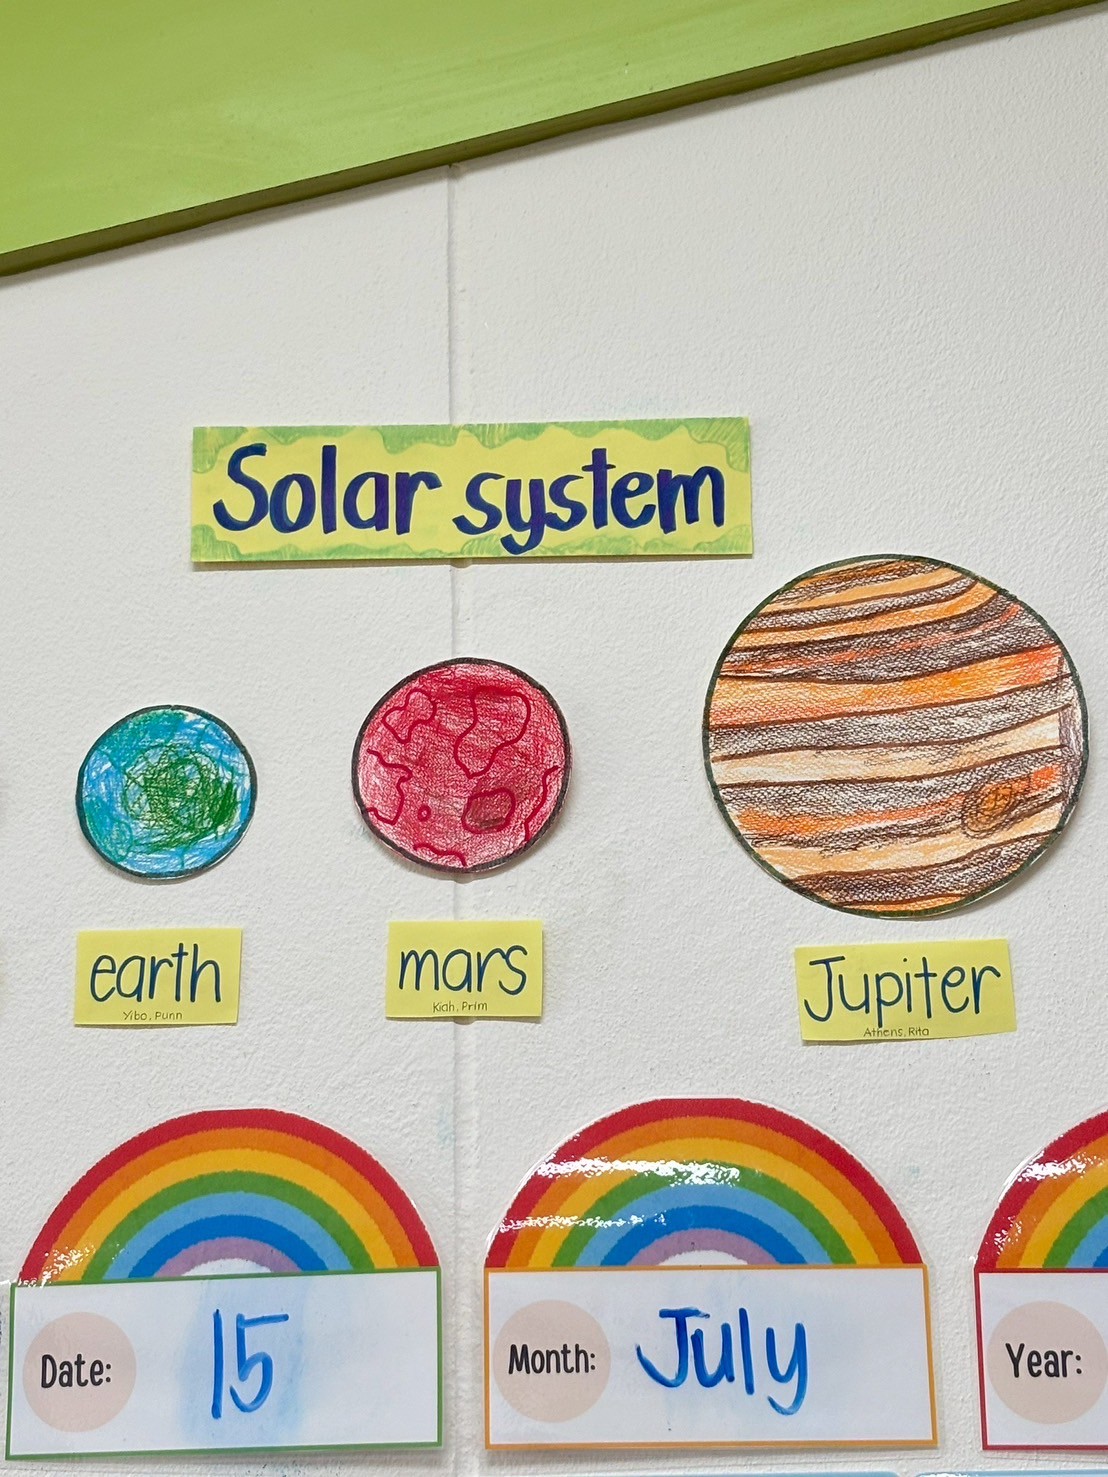 Solar system
earth
Yibo, Punn
mars
Kiah, Prim
Jupiter
Athens, Rita
Date: 15
Month: July
Year: